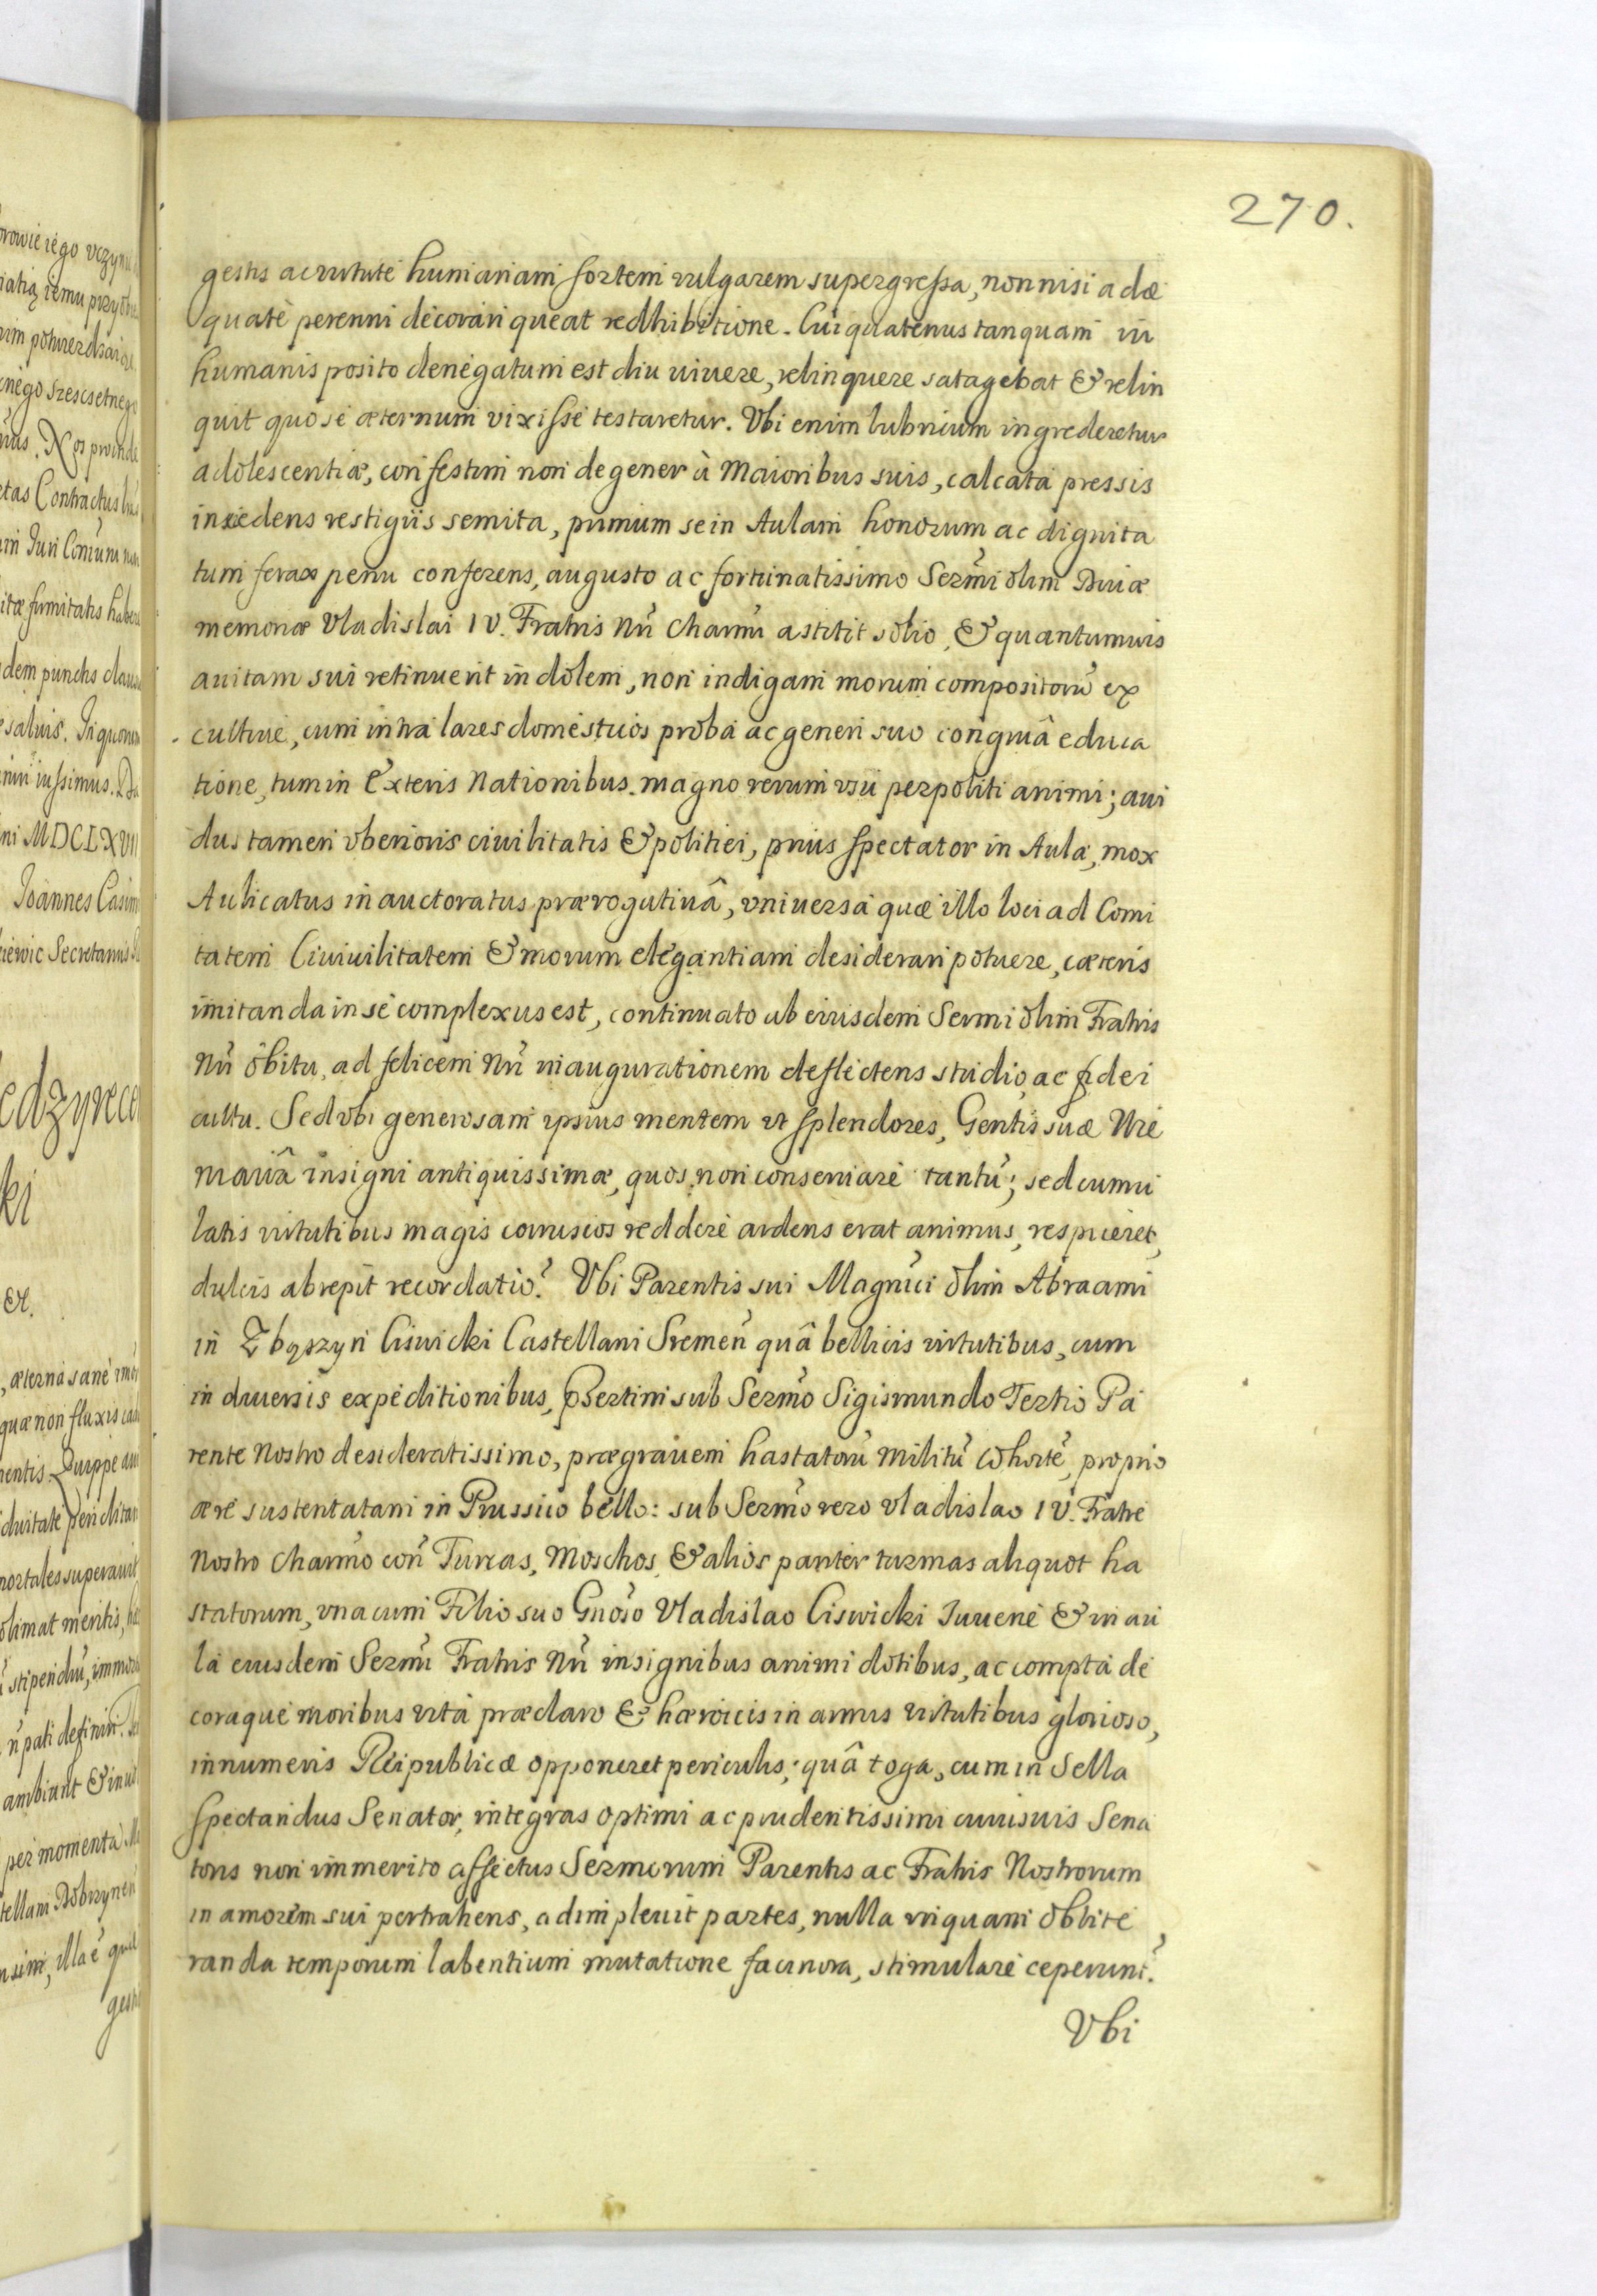 270.
gestis ac virtute humanam sortem vulgarem supergressa, non nisi adæ
quatè perenni decorari queat redhibitione. Cui quatenus tanquam in
humanis posito denegatum est diu vivere, relinquere satagebat & relin
quit quo se æternum vixisse testaretur. Vbi enim lubricum ingrederetur
adolescentiæ, confestim non degener à Maioribus suis, calcata pressis
insedens vestigiis semita, primum se in Aulam honorum ac dignita
tum ferax penu conferens, augusto ac fortunatissimo Sermi olim Diuæ
memoriæ Vladislai IV. Fratris Nri Charmi astitit solio, & quantumuis
auitam sui retinuerit indolem, non indigam morum compositorũ ex
culturæ, cum intra lares domesticos proba ac generi suo congruâ educa
tione, tum in Exteris Nationibus magno rerum vsu perpoliti animi; aui
dus tamen vberioris ciuilitatis & politiei, prius spectator in Aula, mox
Aulicatus in auctoratus prærogatiuâ, vniuersa quæ illo loci ad Comi
tatem Ciuiuilitatem & morum elegantiam desiderari potuere, cæteris
imitanda in se complexus est, continuato ab eiusdem Sermi olim Fratris
Nri obitu, ad felicem Nri inaugurationem deflectens studio ac fidei
cultu. Sed vbi generosam ipsius mentem vt splendores, Gentis suæ Nie
mariâ insigni antiquissimæ, quos non conseruare tantũ; sed cumu
latis virtutibus magis coruscos reddere ardens erat animus, respiceret,
dulcis abrepit recordatio? Vbi Parentis sui Magnici olim Abraami
in Zbąszyn Ciswicki Castellani Sremeñ quâ bellicis virtutibus, cum
in diuersis expeditionibus, psertim sub Sermo Sigismundo Tertio Pa
rente Nostro desideratissimo, prægrauem hastatorũ Militũ Cohortẽ, proprio
ære sustentatam in Prussico bello: sub Sermo vero Vladislao IV. Fratre
Nostro Charmo coñ Turcas, Moschos, & alios pariter turmas aliquot ha
statorum, vna cum Filio suo Gnoso Vladislao Ciswicki Iuuene & in au
la eiusdem Sermi Fratris Nri insignibus animi dotibus, ac compta de
coraque moribus vita præclaro & hæroicis in armis virtutibus glorioso,
innumeris Reipublicæ opponeret periculis; quâ toga, cum in Sella
spectandus Senator, integras optimi ac prudentissimi cuiusuis Sena
toris non immerito affectus Sermorum Parentis ac Fratris Nostrorum
in amorem sui pertrahens, adimpleuit partes, nulla vnquam oblite
randa temporum labentium mutatione facinora, stimulare ceperunt?
Vbi